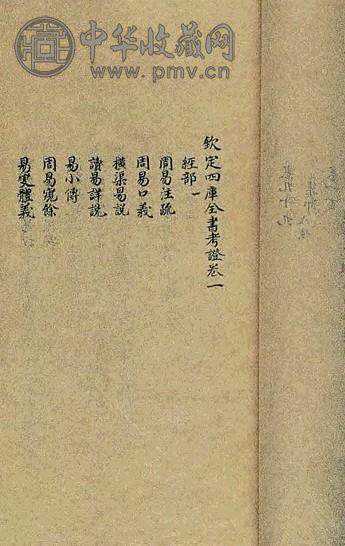 中华收藏网
www.pmv.cn
欽定四庫全書考證卷一
經部一
周易注疏
周易口義
橫渠易說
讀易詳說
易小傳
周易窺餘
易變體義